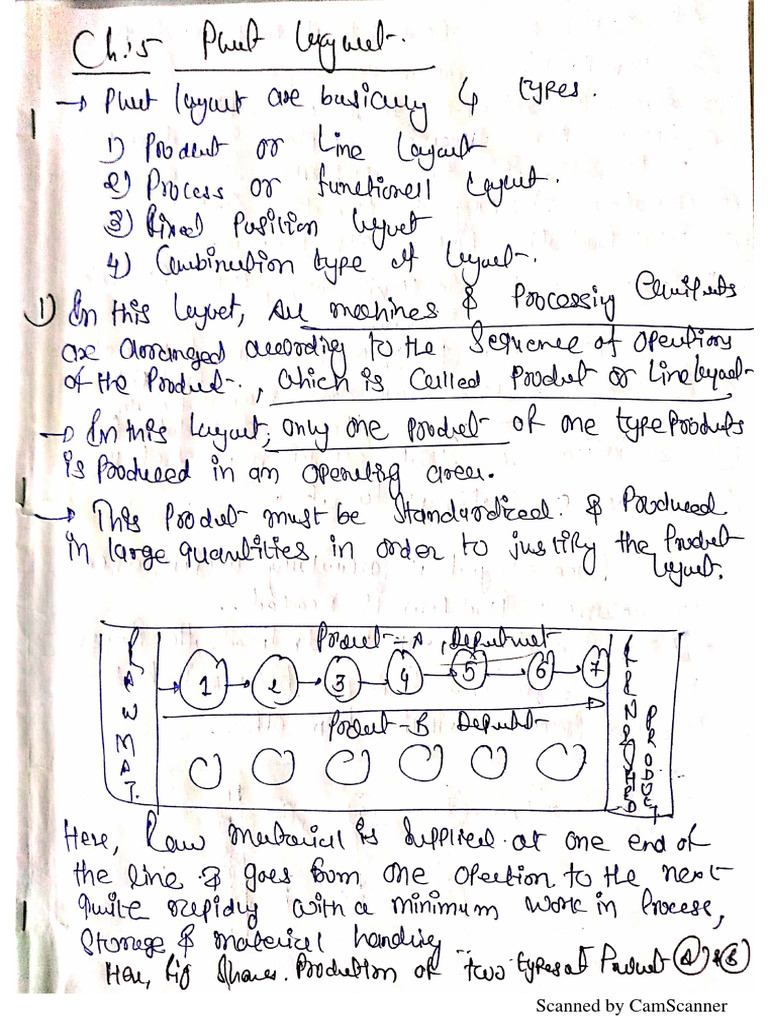 Ch:5 Plant layout.
→ Plant layout are basically 4 types.
1) Product or Line Layout
2) Process or functionell Layout.
3) Fixed Position layout
4) Combination type of layout.
1) In this layout, All machines & Processing Equipments
are arranged according to the Sequence of operations
of the Product., which is called Product or Line layout
→ In this layout, only one product of one type Products
is produced in an operating area.
→ This Product must be standardized & Produced
in large quantities in order to justify the Product
layout.
Product-A, Department
RAW MAT.
1 → 2 → 3 → 4 → 5 → 6 → 7
FINISHED PRODUCT
Product-B Departt
Here, Raw material is supplied at one end of
the line & goes from one opertion to the next
quite rapidly with a minimum work in Process,
Storage & material handing
Here, fig shares. Production of two types of Product A & B
Scanned by CamScanner